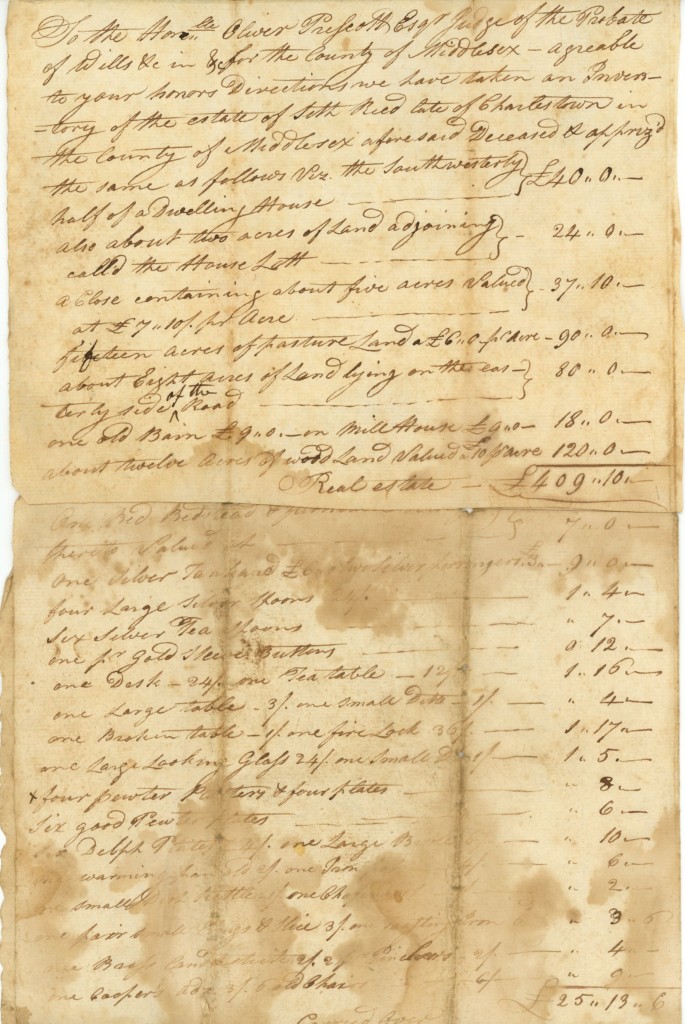 To the Honble Oliver Prescott Esqr Judge of the Probate
of Wills &c in & for the County of Middlesex – agreable
to your honors Directions we have taken an Inven-
-tory of the estate of Seth Reed late of Charlestown in
the County of Middlesex aforesaid Deceased & appriz'd
the same as follows Viz. the Southwesterly
half of a Dwelling House — £40 ,, 0 ,, —
also about two acres of Land adjoining
calld the House Lott — 24 ,, 0 ,, —
a Close containing about five acres Valued
at £7 ,, 10/. pr Acre — 37 ,, 10 ,, —
fifteen acres of pasture Land a £6 ,, 0 pr Acre – 90 ,, 0 ,, —
about Eight acres of Land lying on the eas-
terly side of the Road — 80 ,, 0 ,, —
one old Barn £9 ,, 0 ,, — on Mill House £9 ,, 0 – 18 ,, 0 ,, —
about twelve Acres of wood Land Valued a £10 pr acre 120 ,, 0 ,, —
Real estate — £409 ,, 10 ,, —
One Bed Bedstead &
thereto Valued at 7 ,, 0 ,, —
one Silver Tankard £6 Silver porringers £3 – 9 ,, 0 ,, —
four Large Silver spoons 24/. 1 ,, 4 —
Six Silver Tea spoons ,, 7 ,, —
one pr Gold Sleeve Buttons 0 12 ,, —
one Desk – 24/. one Tea table – 12/ 1 ,, 16 —
one Large table – 3/. one small Ditto – 1/. ,, 4 —
one Broken table – 1/. one fire Lock 36/. 1 ,, 17 ,, —
one Large Looking Glass 24/. one Small Do – 1/. 1 ,, 5 ,, —
x four pewter Platters & four plates – ,, 8 ,, —
Six good Pewter plates ,, 6 ,, —
Delph Plates one Large ,, 10 ,, —
warming pan 2/. one Iron ,, 6 ,, —
small one ,, 2 ,, —
one pair small Tongs & Slice 3/. one Iron ,, 3 ,, 6
one Brass Candlestick 2/. ,, 4 ,, —
one Coopers adz 3/. 6 old Chairs 6/. ,, 9 ,, —
£25 ,, 13 ,, 6
Carried over